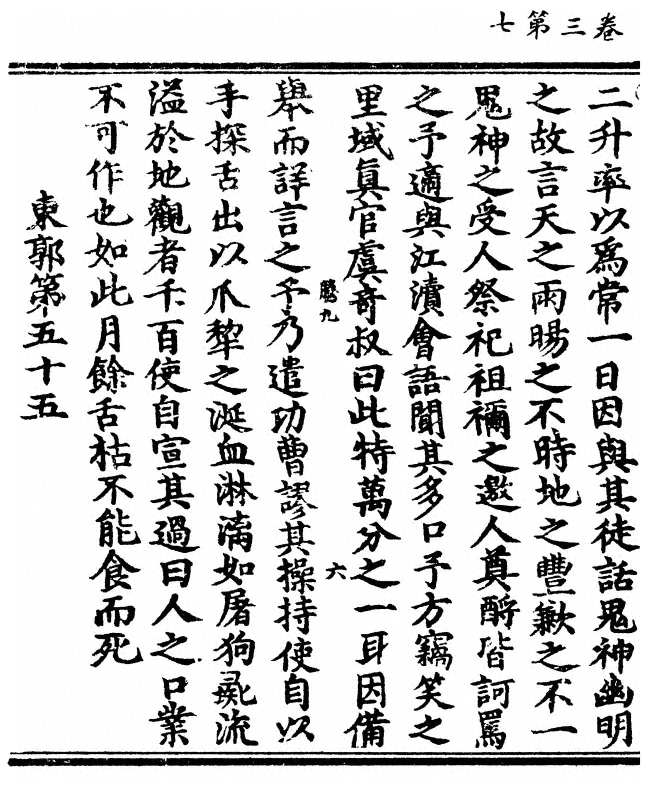 卷三第七
二升率以爲常一日因與其徒話鬼神幽明
之故言天之雨暘之不時地之豐歉之不一
鬼神之受人祭祀祖禰之邀人奠酹皆訶罵
之予適與江瀆會語聞其多口予方竊笑之
里域眞官虞奇叔曰此特萬分之一耳因備
騰九
六
舉而詳言之予乃遣功曹謬其操持使自以
手探舌出以爪犂之涎血淋漓如屠狗彘流
溢於地觀者千百使自宣其過曰人之口業
不可作也如此月餘舌枯不能食而死
東郭第五十五